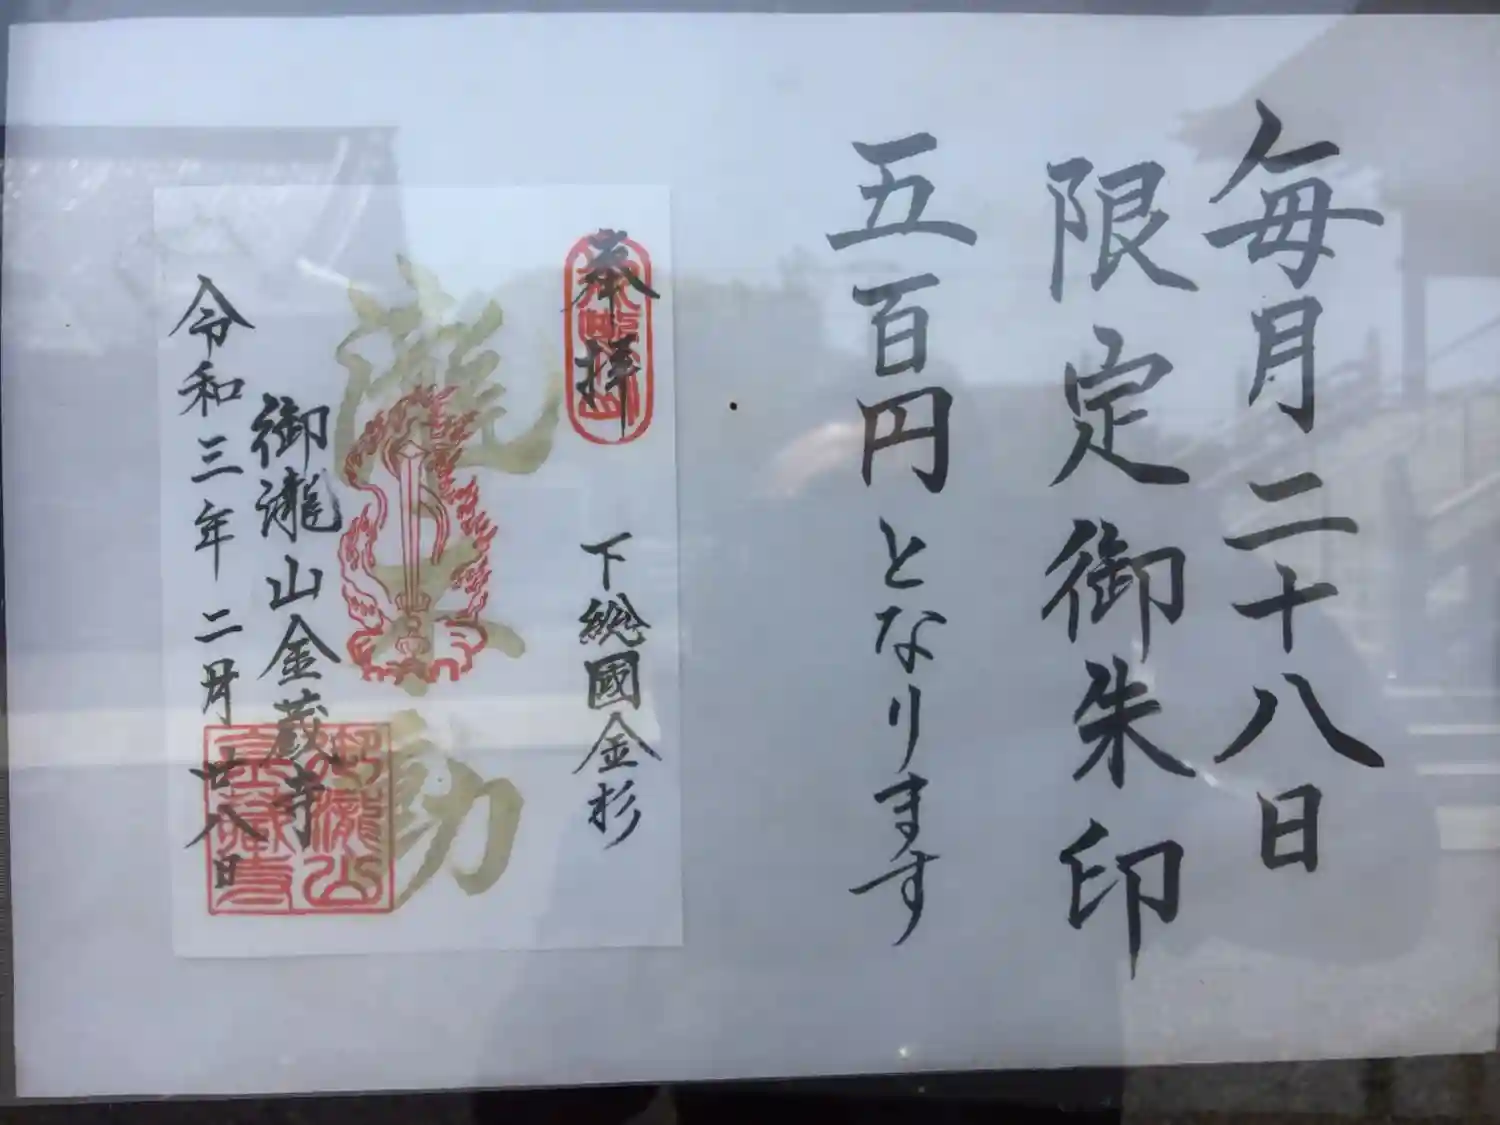 毎月二十八日
限定御朱印
五百円となります
奉拝
下総國金杉
瀧不動
御瀧山金蔵寺
令和三年二月廿八日
御瀧山
金蔵寺